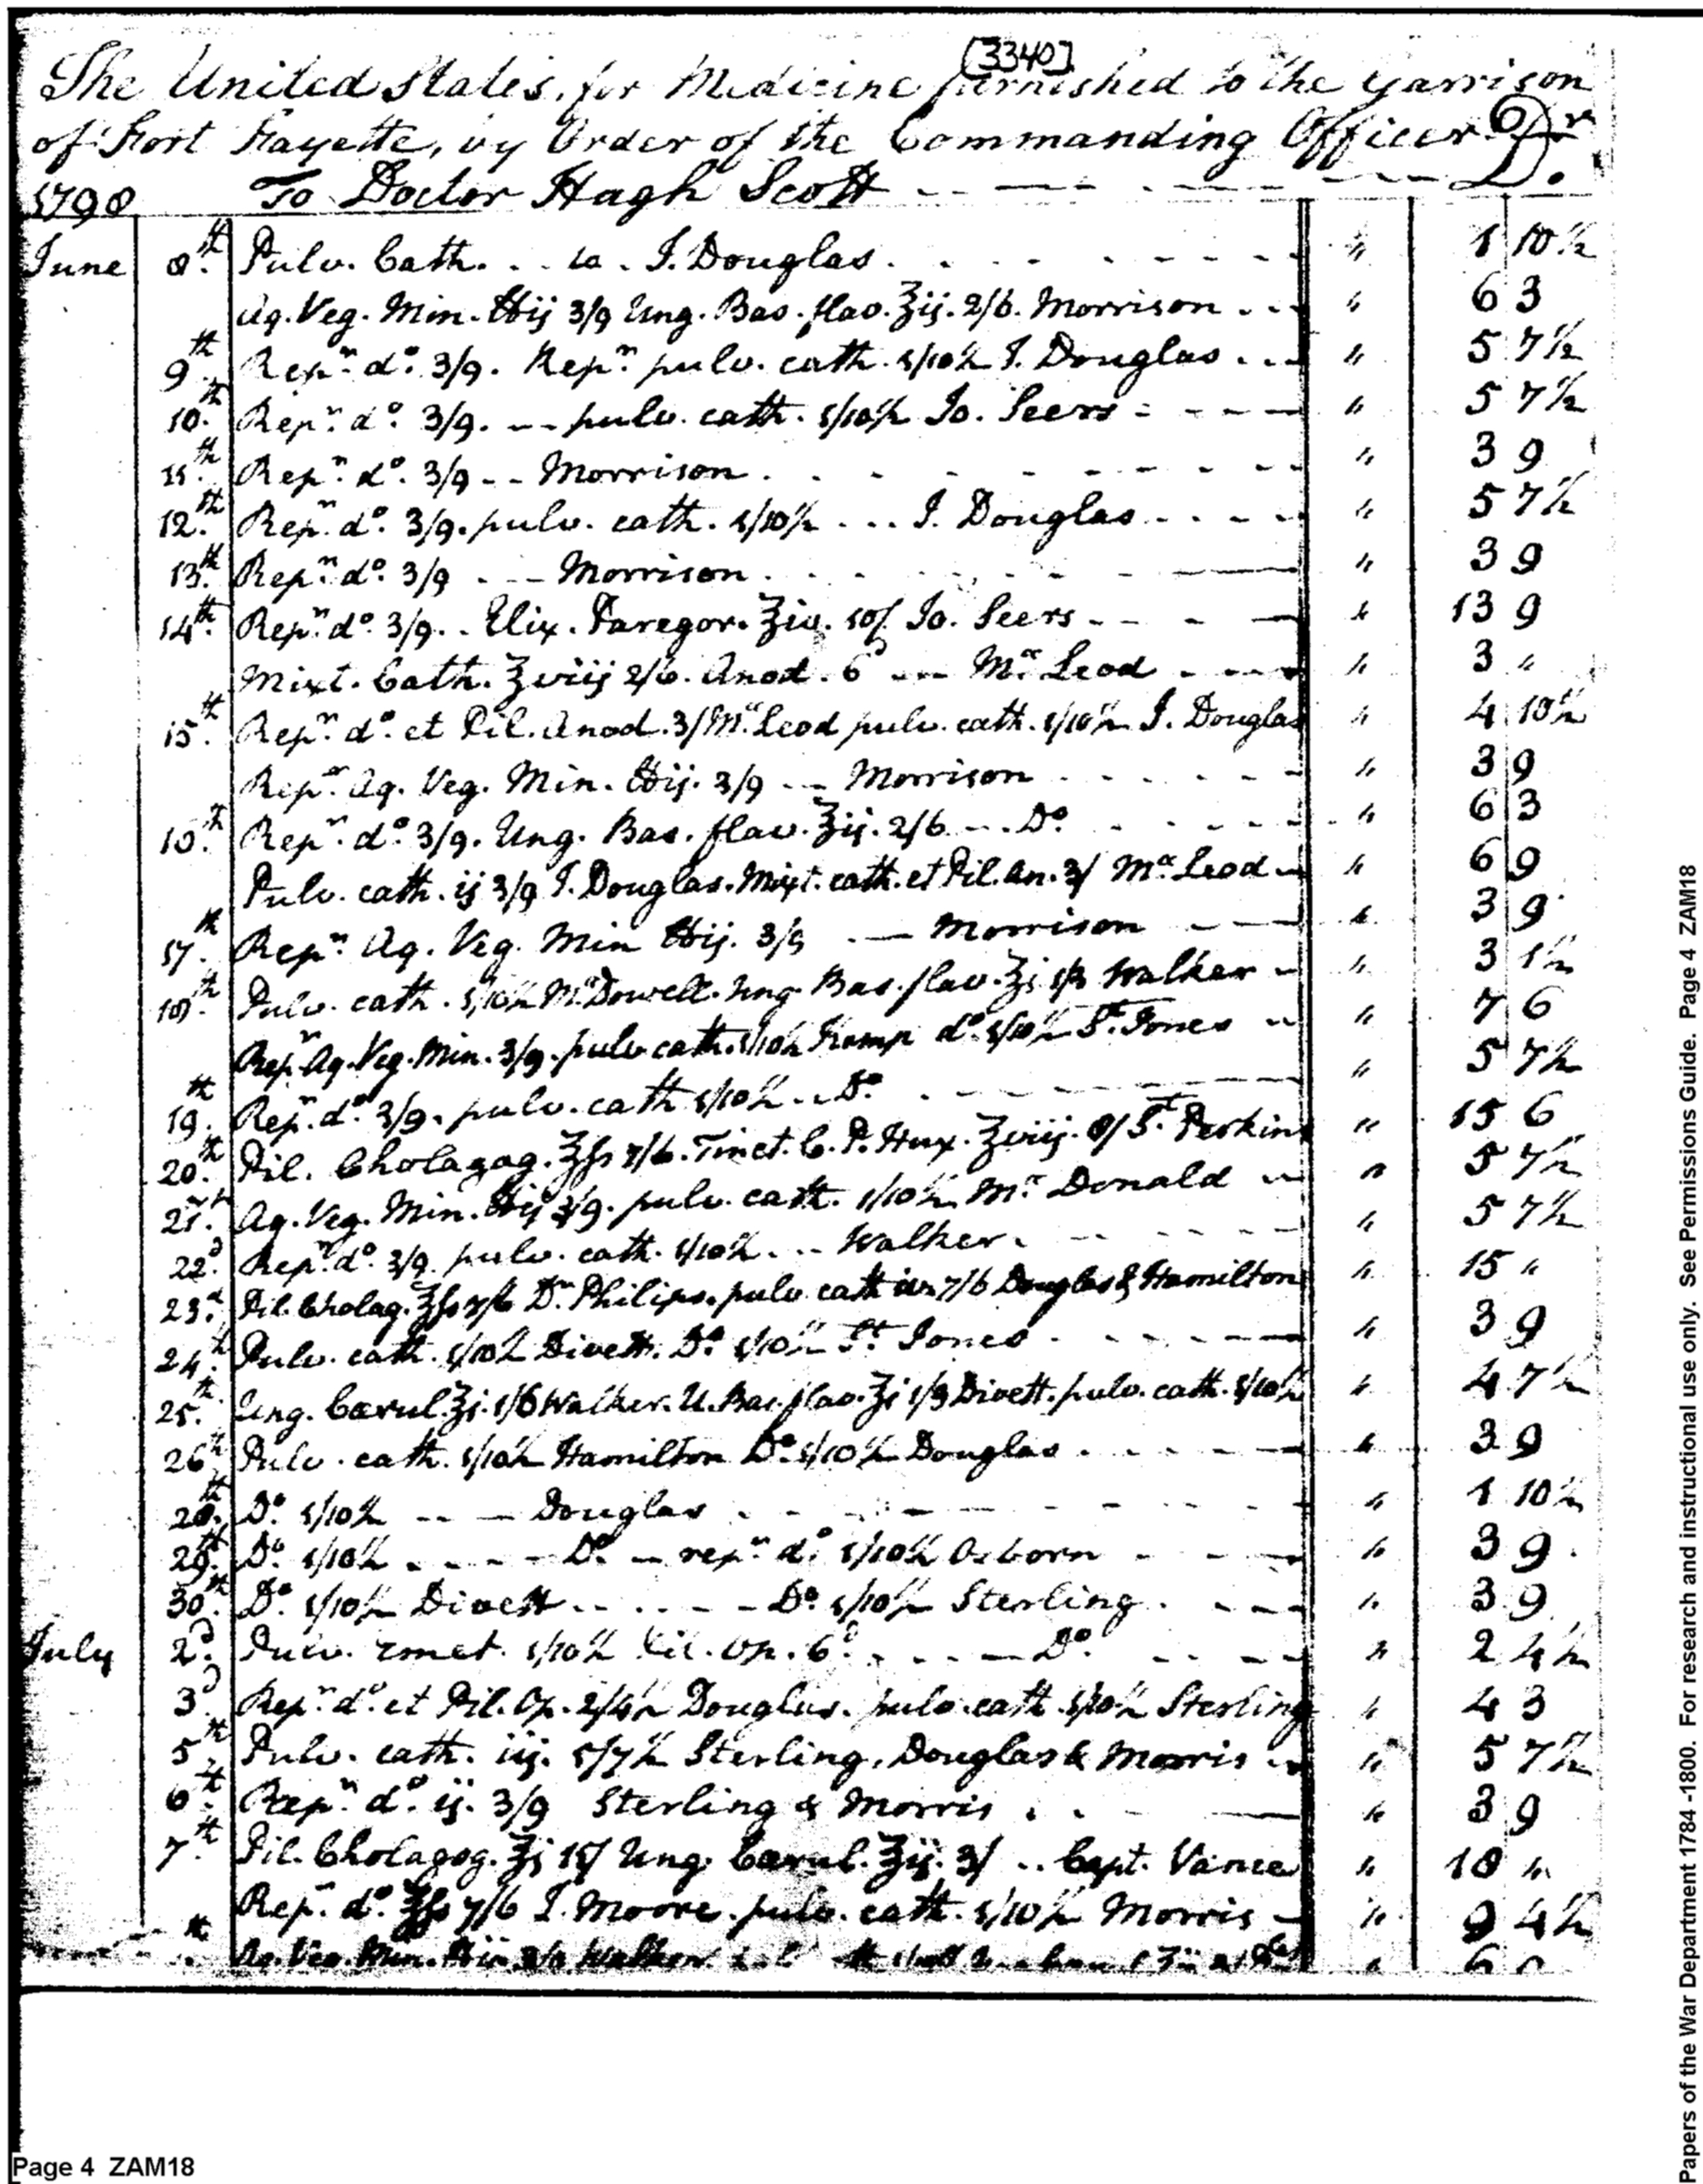 [3340]
The United States, for Medicine furnished to the Garrison
of Fort Fayette, by Order of the Commanding Officer Dr
1798 To Doctor Hugh Scott D.
June 8th Pulv. Cath. . . to . J. Douglas. " 1 10½
Aq. Veg. Min. ℔ij 3/9 Ung. Bas. flav. ʒij. 2/6. Morrison " 6 3
9th Repn. do. 3/9. Repn. pulv. cath. 1/10½ J. Douglas " 5 7½
10th Repn. do. 3/9. -- pulv. cath. 1/10½ Jo. Seers " 5 7½
11th Repn. do. 3/9 -- Morrison " 3 9
12th Repn. do. 3/9. pulv. cath. 1/10½ ... J. Douglas " 5 7½
13th Repn. do. 3/9 --- Morrison " 3 9
14th Repn. do. 3/9. . Elix. Paregor. ℥iv. 10/ Jo. Seers " 13 9
Mixt. Cath. ℥viij 2/6. Anod. 6d --- Mc.Leod " 3 "
15th Repn. do. et Pil. Anod. 3/ Mc.Leod pulv. cath. 1/10½ J. Douglas " 4 10½
Repn. Aq. Veg. Min. ℔ij. 3/9 -- Morrison " 3 9
16th Repn. do. 3/9. Ung. Bas. flav. ʒij. 2/6 --- Do. " 6 3
Pulv. cath. ij 3/9 J. Douglas. Mixt. cath. et Pil. An. 3/ Mc.Leod " 6 9
17th Repn. Aq. Veg. Min ℔ij. 3/9 -- Morrison " 3 9
18th Pulv. cath. 1/10½ Mc.Dowell. Ung. Bas. flav. ʒi 1/3 Walker " 3 1½
Repn. Aq. Veg. Min. 3/9. pulv cath. 1/10½ Kemp do. 1/10½ St. Jones " 7 6
19th Repn. do. 3/9. pulv. cath 1/10½ -- Do. " 5 7½
20th Pil. Cholagog. ʒfs 7/6. Tinct. C. P. Hux. ℥viij. 8/ St. Perkins " 15 6
21st Aq. Veg. Min. ℔ij 3/9. pulv. cath. 1/10½ Mc. Donald " 5 7½
22d Repn. do. 3/9. pulv. cath. 1/10½ ... Walker. " 5 7½
23d Pil. Cholag. ʒfs 7/6 Dr. Philips. pulv. cath iv. 7/6 Douglas & Hamilton " 15 "
24th Pulv. cath. 1/10½ Divett. Do. 1/10½ St. Jones " 3 9
25th Ung. Cærul. ʒi. 1/6 Walker. U. Bas. flav. ʒi 1/3 Divett. pulv. cath. 1/10½ " 4 7½
26th Pulv. cath. 1/10½ Hamilton Do. 1/10½ Douglas " 3 9
28th Do. 1/10½ -- Douglas " 1 10½
29th Do. 1/10½ ---- Do. -- repn. do. 1/10½ Osborn " 3 9
30th Do. 1/10½ Divett ---- Do. 1/10½ Sterling " 3 9
July 2d Pulv. emet. 1/10½ Pil. Op. 6d ---- Do. " 2 4½
3d Repn. do. et Pil. Op. 2/4½ Douglas. pulv. cath. 1/10½ Sterling " 4 3
5th Pulv. cath. iij. 5/7½ Sterling, Douglas & Morris " 5 7½
6th Repn. do. ij. 3/9 Sterling & Morris " 3 9
7th Pil. Cholagog. ʒi 15/ Ung. Cærul. ʒij. 3/ .. Capt. Vance " 18 "
Repn. do. ʒfs 7/6 J. Moore. pulv. cath. 1/10½ Morris " 9 4½
Aq. Veg. Min. ℔ij 3/9 Walker "
Page 4 ZAM18
Papers of the War Department 1784 -1800. For research and instructional use only. See Permissions Guide. Page 4 ZAM18